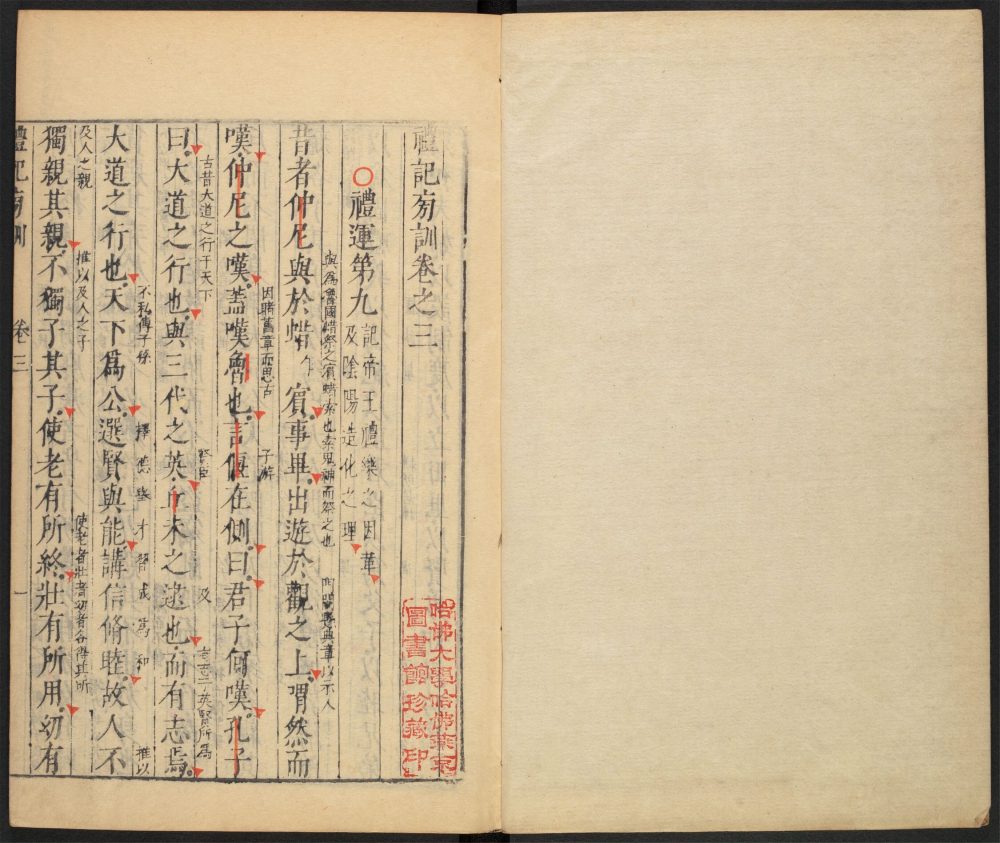 禮記旁訓卷之三
禮運第九
記帝王禮樂之因革
及陰陽造化之理
與爲魯國蜡祭之賓蜡索也索鬼神而祭之也
昔者仲尼與於蜡賓事畢出遊於觀之上喟然而
因睹舊章而思古
子游
嘆仲尼之嘆蓋嘆魯也言偃在側曰君子何嘆孔子
古昔大道之行于天下
賢臣
及
有志于英賢所爲
曰大道之行也與三代之英丘未之逮也而有志焉
不私傳子孫
擇德
才智
爲和
推以
大道之行也天下爲公選賢與能講信脩睦故人不
及人之親
推以及人之子
使老者壯者幼者各得其所
獨親其親不獨子其子使老有所終壯有所用幼有
禮記旁訓
卷三
一
哈佛大學哈佛燕京
圖書館珍藏印